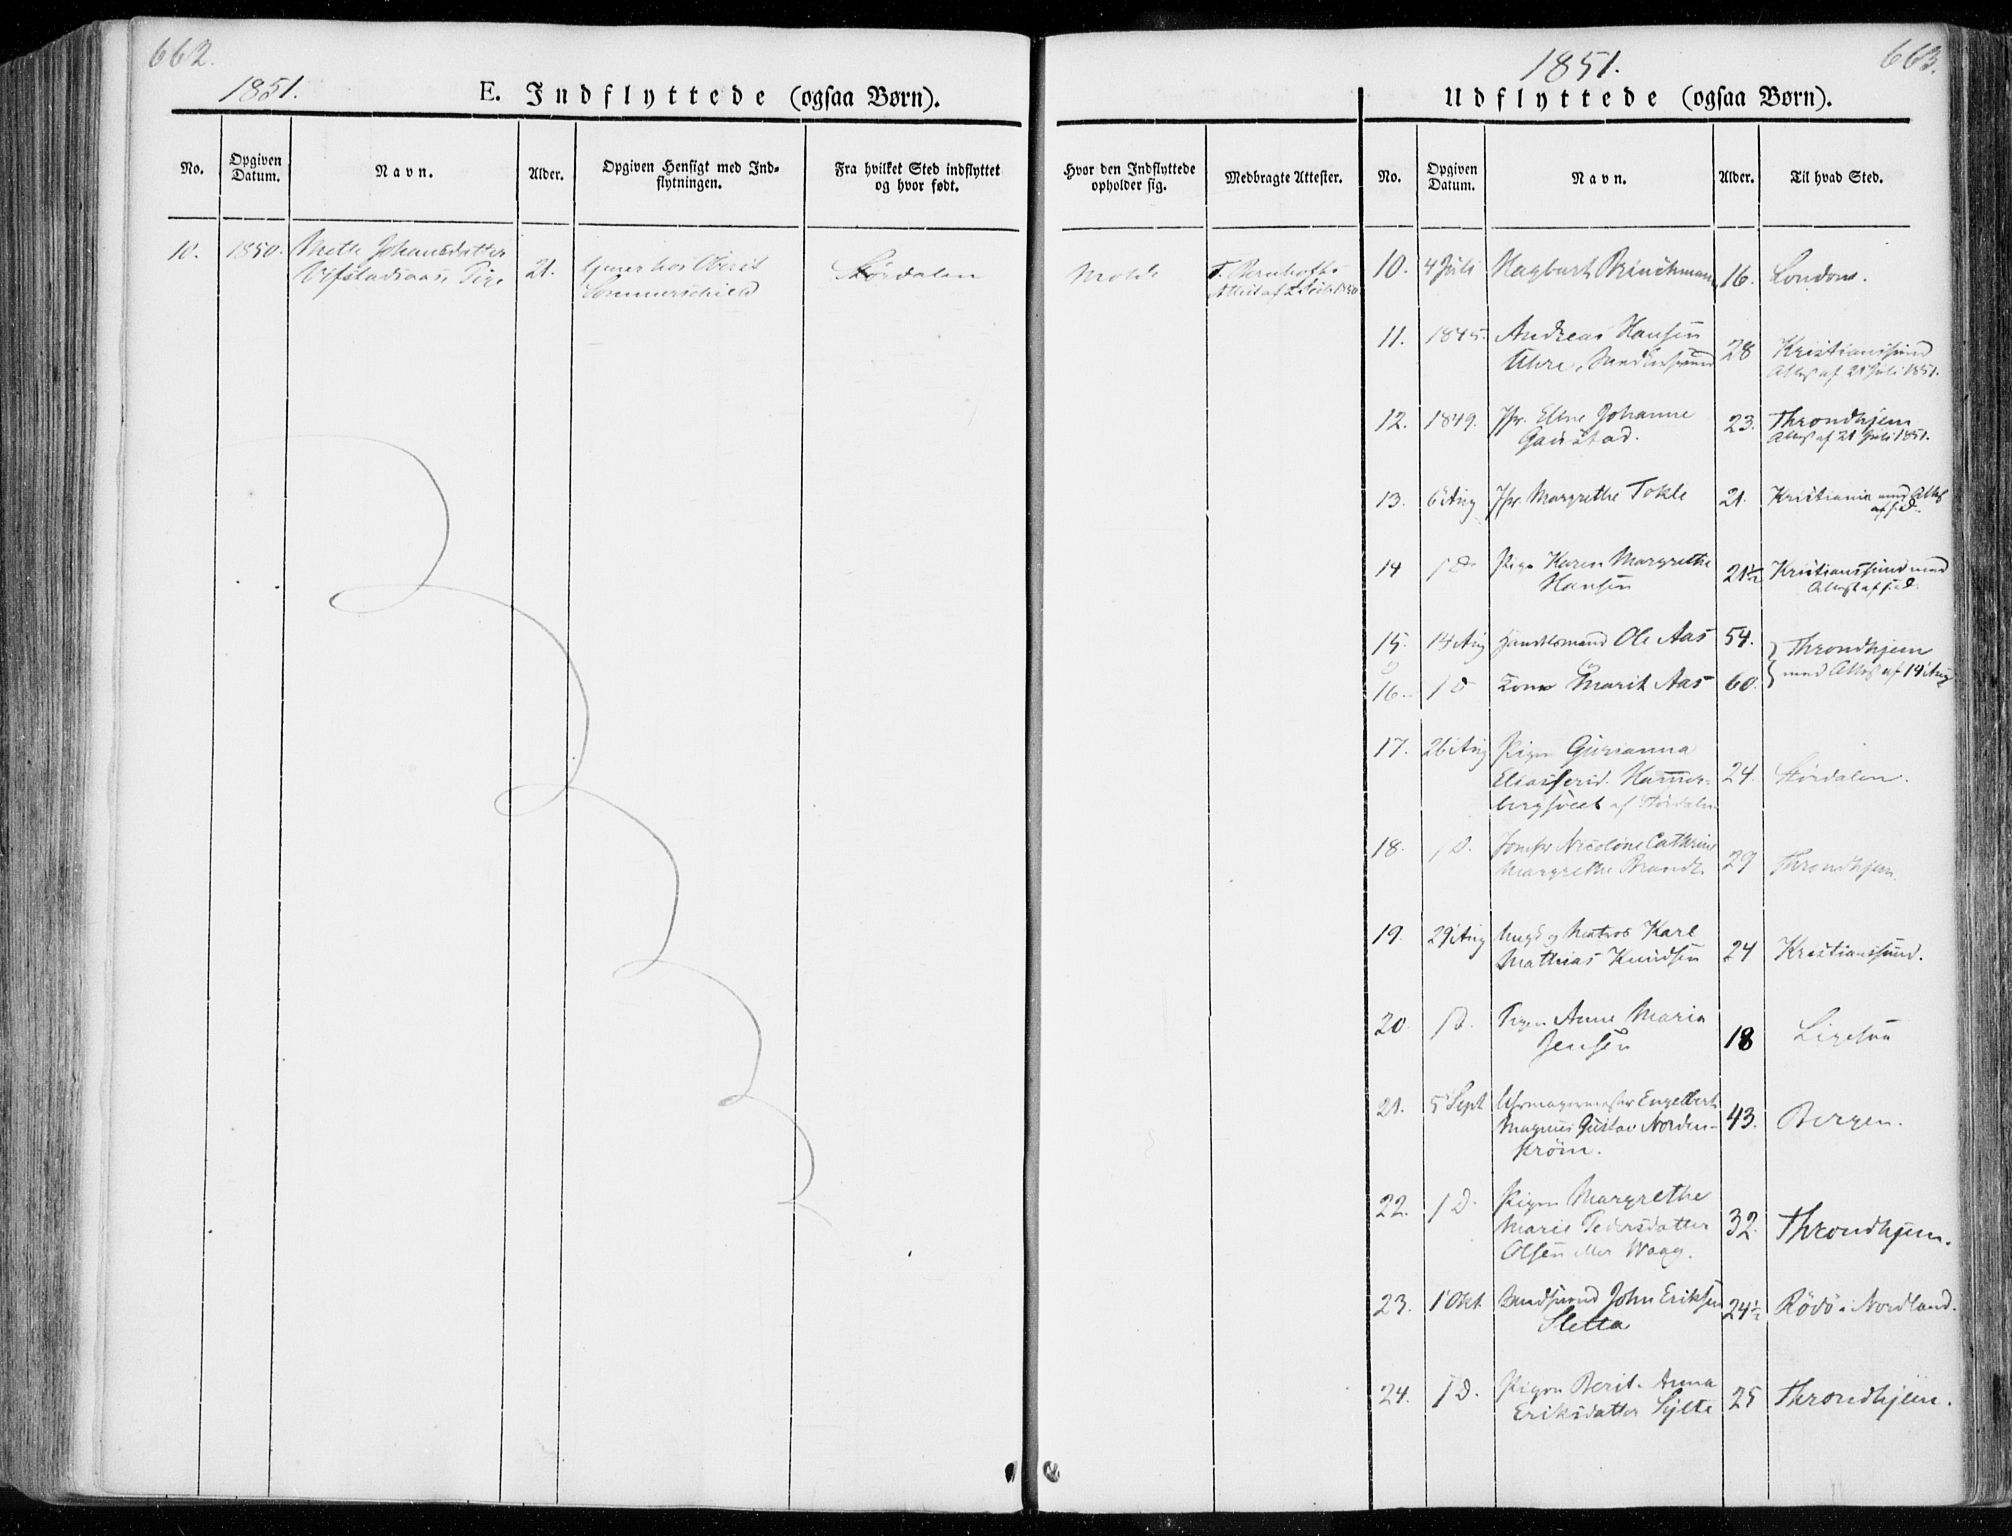 662.
1851.
E. Indflyttede (ogsaa Børn).
No.
Opgiven Datum.
Navn.
Alder.
Opgiven Hensigt med Indflytningen.
Fra hvilket Sted indflyttet og hvor født.
10. 1850. Mette Johansdatter
Pige 21. hos Oberst Størdalen
Sommerschield
1851.
663.
Udflyttede (ogsaa Børn).
Hvor den Indflyttede opholder sig.
Medbragte Attester.
No.
Opgiven Datum.
Navn.
Alder.
Til hvad Sted.
Molde
10. 4 Juli Hagbart Brinchmann 16. London.
11. 1845. Andreas Hansen
Uhre, 28 Kristianssund
Attest af 21 Juli 1851.
12. 1849. Jfr. Elene Johanne 23. Throndhjem
Gaustad. Attest af 21 Juli 1851.
13. 6 Aug Jfr. Margrethe Tokle 21. Kristiania med Attest
af s. D.
14 s D. Pige Karen Margrethe 21½ Kristianssund med
Hansen Attest af s. D.
15. 14 Aug Handelsmand Ole Aas 54. Throndhjem
16. s D Kone Marit Aas 60. med Attest af 14 Aug
17. 26 Aug Pigen Gjerianna
Eliasserid. Hammer- 24. Størdalen.
af Størdalen
18. s D. Jomfr Nicoline Cathrine
Margrethe Brandt 29 Throndhjem.
19. 29 Aug Ungk og Matros Karl
Mathias Knudsen 24 Kristianssund.
20. s D. Pigen Anne Maria
Jensen 18 Ligesaa
21. 5 Sept Uhrmagermester Engelbert
Magnus Gustav Norden- 43. Bergen.
strøm.
22. s D. Pigen Margrethe
Marie Pedersdatter 32. Throndhjem.
Olsen eller Waag.
23. 1 Okt. John Eriksen 24½ Rödö i Nordland.
Sletta
24. s D. Pigen Berit Anna
Eriksdatter Sylte 25 Throndhjem.